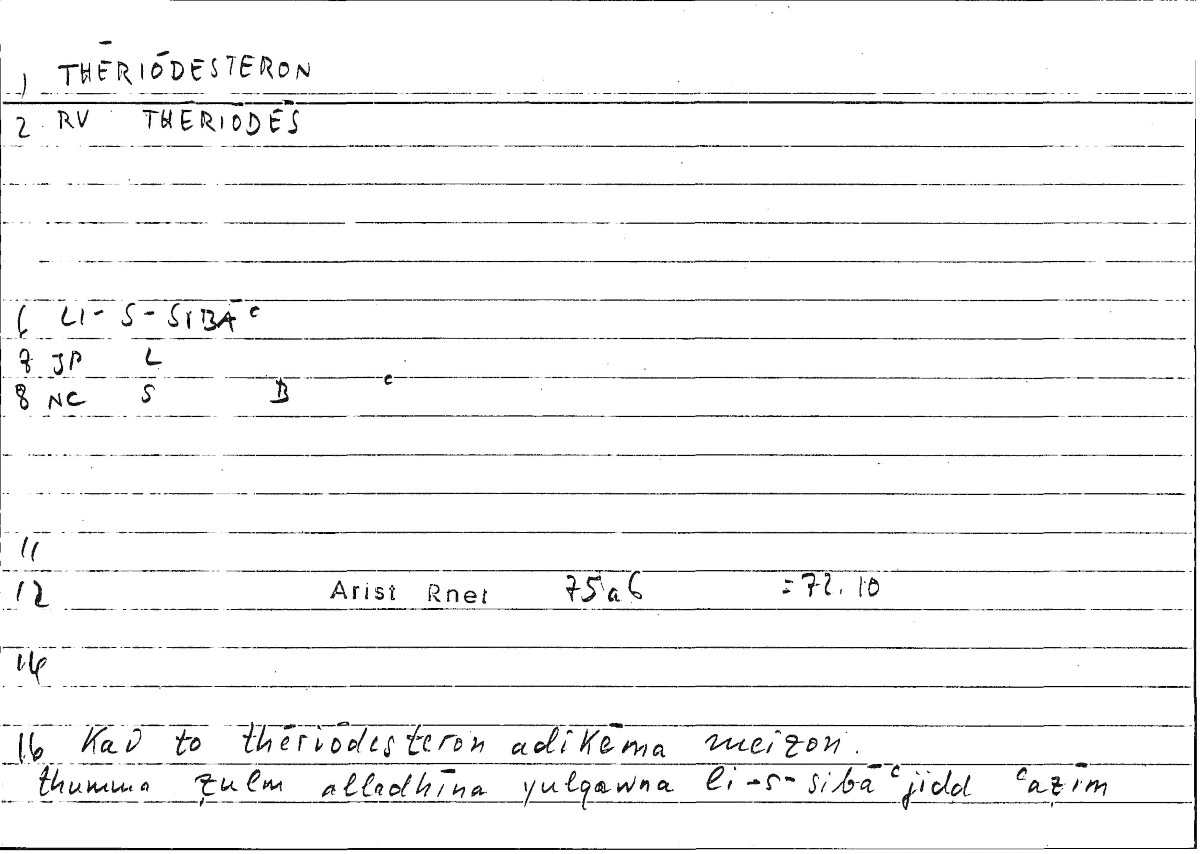 1) THĒRIŌDESTERON
2. RV THERIŌDĒS
6 LI- S-SIBĀᶜ
7 JP L
8 NC S B ᶜ
11
12 Arist Rhet 75a6 =72.10
14
16 Kai to thēriōdesteron adikēma meizon.
thumma ẓulm alladhīna yulqawna li-s-sibāᶜ jidd ᶜaẓīm